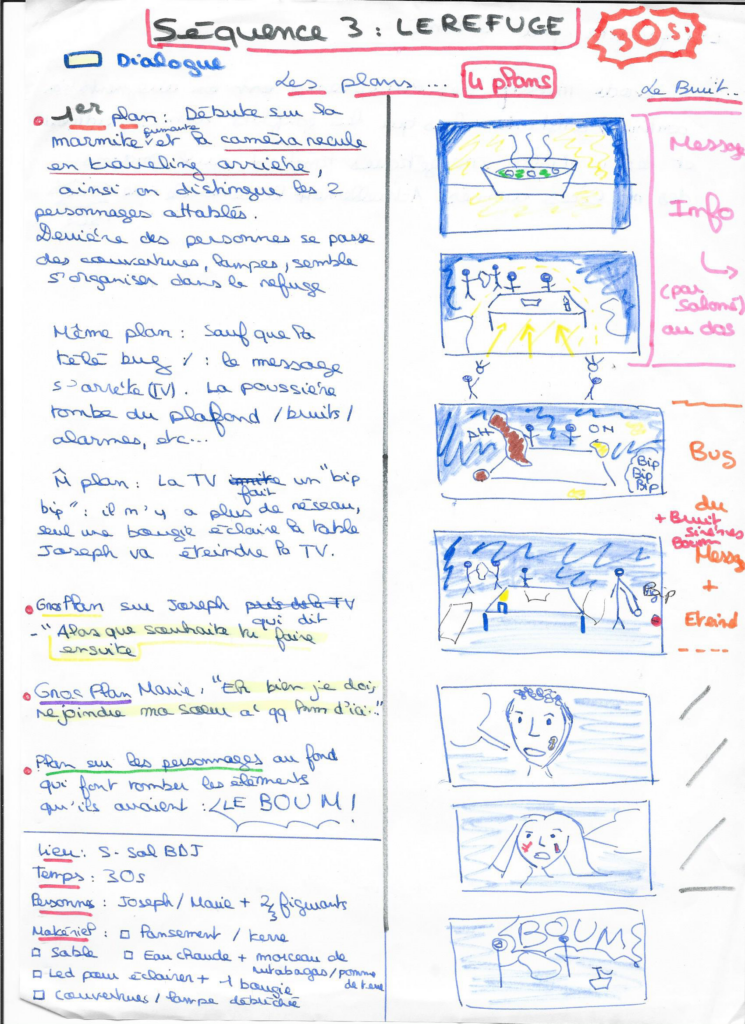 Séquence 3 : LE REFUGE
30 s.
Dialogue
Les plans... 4 plans
Le Bruit..
1er plan : Débute sur la
marmite fumante et la caméra recule
en traveling arrière,
ainsi on distingue les 2
personnages attablés.
Derrière des personnes se passe
des couvertures, lampes, semble
s'organiser dans le refuge
Même plan : Sauf que la
télé bug : le message
s'arrête (TV). La poussière
tombe du plafond / bruits /
alarmes, etc...
M̂ plan : La TV fait un "bip
bip" : il n'y a plus de réseau,
seul une bougie éclaire la table
Joseph va éteindre la TV.
Gros Plan sur Joseph près de la TV
qui dit
- "Alors que souhaite tu faire
ensuite
Gros Plan Marie, "Eh bien je dois
rejoindre ma soeur a' qq km d'ici.."
Plan sur les personnages au fond
qui font tomber les éléments
qu'ils avaient : LE BOUM !
Lieu : S-Sol BDJ
Temps : 30s
Personnes : Joseph / Marie + 2/3 figurants
Matériel : Pansement / terre
Sable Eau chaude + morceau de
rutabagas / pomme
de terre
Led pour éclairer + 1 bougie
Couvertures / lampe
Message
Info
(par
Salomé)
au dos
AH
OH
Bip
Bip
Bip
Bug
du
+ Bruit
sirènes
Boum
Messg
+
Eteind
BOUM